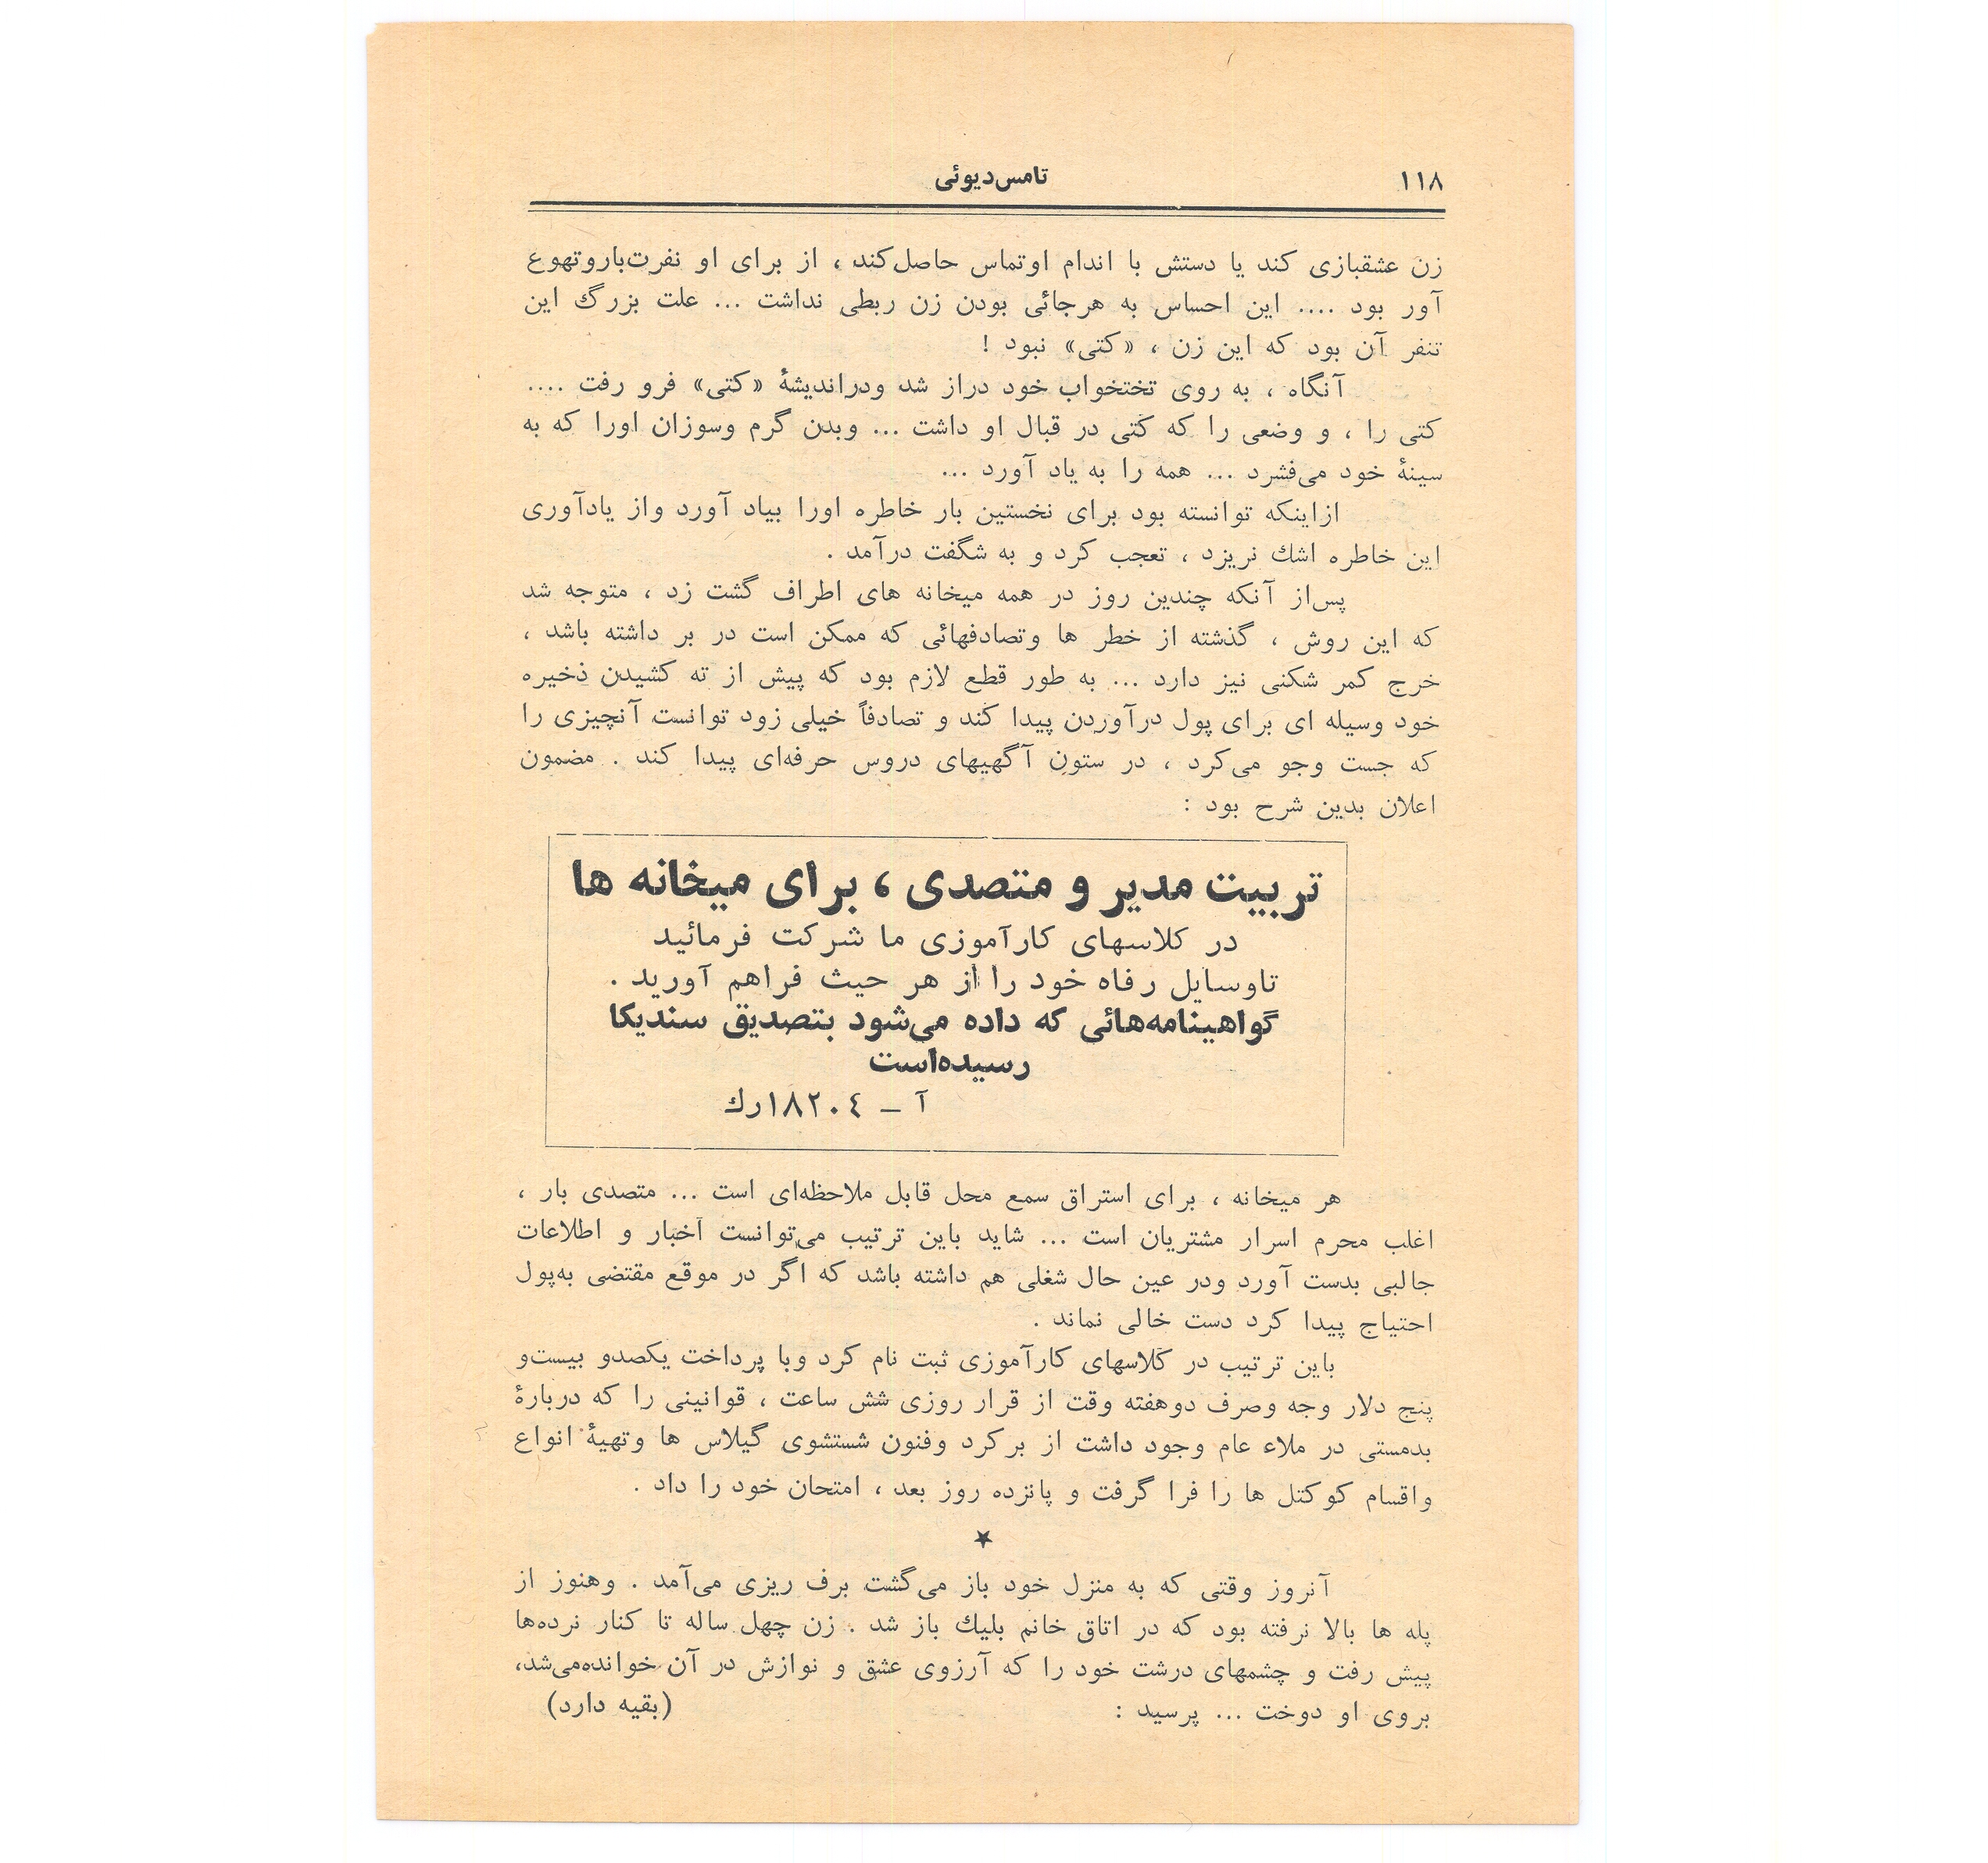 ۱۱۸
تامس‌دیوئی
زن عشقبازی کند یا دستش با اندام اوتماس حاصل‌کند ، از برای او نفرت‌باروتهوع
آور بود .... این احساس به هرجائی بودن زن ربطی نداشت ... علت بزرگ این
تنفر آن بود که این زن ، «کتی» نبود !
آنگاه ، به روی تختخواب خود دراز شد ودراندیشهٔ «کتی» فرو رفت ....
کتی را ، و وضعی را که کتی در قبال او داشت ... وبدن گرم وسوزان اورا که به
سینهٔ خود می‌فشرد ... همه را به یاد آورد ...
ازاینکه توانسته بود برای نخستین بار خاطره اورا بیاد آورد واز یادآوری
این خاطره اشك نریزد ، تعجب کرد و به شگفت درآمد .
پس‌از آنکه چندین روز در همه میخانه های اطراف گشت زد ، متوجه شد
که این روش ، گذشته از خطر ها وتصادفهائی که ممکن است در بر داشته باشد ،
خرج کمر شکنی نیز دارد ... به طور قطع لازم بود که پیش از ته کشیدن ذخیره
خود وسیله ای برای پول درآوردن پیدا کند و تصادفاً خیلی زود توانست آنچیزی را
که جست وجو می‌کرد ، در ستون آگهیهای دروس حرفه‌ای پیدا کند . مضمون
اعلان بدین شرح بود :
تربیت مدیر و متصدی ، برای میخانه ها
در کلاسهای کارآموزی ما شرکت فرمائید
تاوسایل رفاه خود را از هر حیث فراهم آورید .
گواهینامه‌هائی که داده می‌شود بتصدیق سندیکا
رسیده‌است
آ – ۱۸۲۰٤رك
هر میخانه ، برای استراق سمع محل قابل ملاحظه‌ای است ... متصدی بار ،
اغلب محرم اسرار مشتریان است ... شاید باین ترتیب می‌توانست اخبار و اطلاعات
جالبی بدست آورد ودر عین حال شغلی هم داشته باشد که اگر در موقع مقتضی به‌پول
احتیاج پیدا کرد دست خالی نماند .
باین ترتیب در کلاسهای کارآموزی ثبت نام کرد وبا پرداخت یکصدو بیست‌و
پنج دلار وجه وصرف دوهفته وقت از قرار روزی شش ساعت ، قوانینی را که دربارهٔ
بدمستی در ملاء عام وجود داشت از برکرد وفنون شستشوی گیلاس ها وتهیهٔ انواع
واقسام کوکتل ها را فرا گرفت و پانزده روز بعد ، امتحان خود را داد .
★
آنروز وقتی که به منزل خود باز می‌گشت برف ریزی می‌آمد . وهنوز از
پله ها بالا نرفته بود که در اتاق خانم بلیك باز شد . زن چهل ساله تا کنار نرده‌ها
پیش رفت و چشمهای درشت خود را که آرزوی عشق و نوازش در آن خوانده‌می‌شد،
بروی او دوخت ... پرسید : (بقیه دارد)